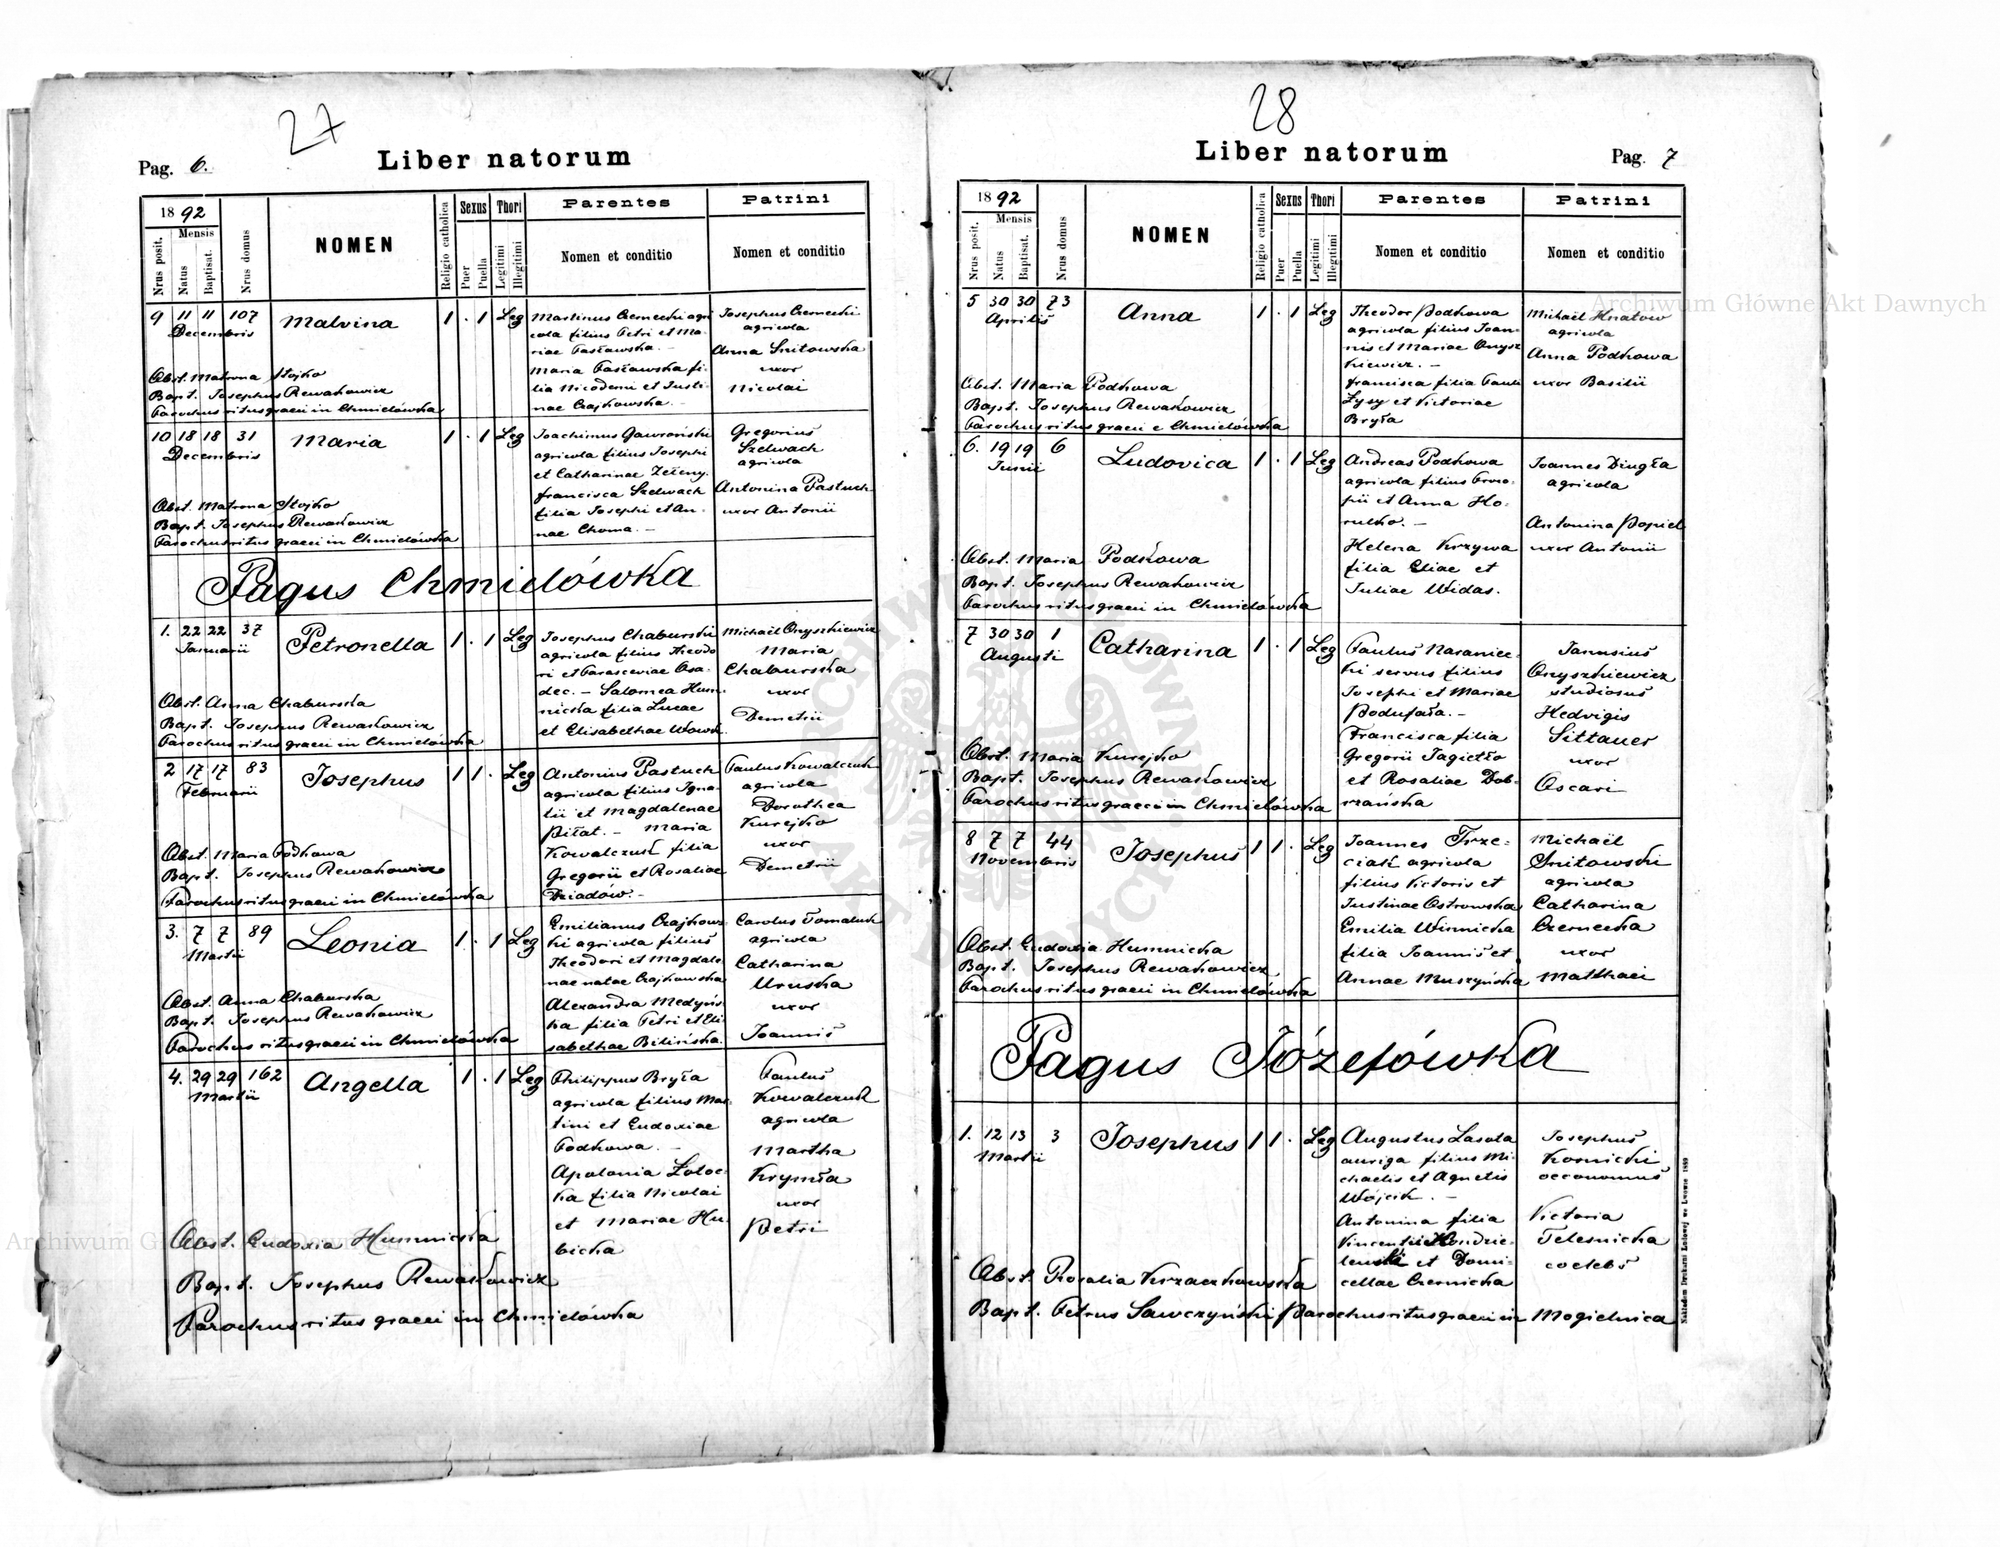 27
Pag. 6.
Liber natorum
1892
Nrus posit.
Mensis
Natus
Baptisat.
Nrus domus
NOMEN
Religio catholica
Sexus
Puer
Puella
Thori
Legitimi
Illegitimi
Parentes
Nomen et conditio
Patrini
Nomen et conditio
9 11 11 107 Malvina 1 . 1 Leg
Decembris
Martinus Czernecki agri
cola filius Petri et Ma-
riae Pasławska. –
Maria Pasławska fi-
lia Nicodemi et Justi-
nae Czajkowska. –
Josephus Czernecki
agricola
Anna Snitowska
uxor
Nicolai
Obst. Matrona Stojko
Bapt. Josephus Rewakowicz
Parochus ritus graeci in Chmielówka
10 18 18 31 Maria 1 . 1 Leg
Decembris
Joachimus Gawroński
agricola filius Josephi
et Catharinae Zełeny.
Francisca Szelwach
filia Josephi et An-
nae Choma. –
Gregorius
Szelwach
agricola
Antonina Pastuch
uxor Antonii
Obst. Matrona Stojko
Bapt. Josephus Rewakowicz
Parochus ritus graeci in Chmielówka
Pagus Chmielówka
1. 22 22 37 Petronella 1 . 1 Leg
Januarii
Josephus Chaburski
agricola filius Theodo
ri et Parasceviae Osa-
dec. – Salomea Hum-
nicka filia Lucae
et Elisabethae Wowk.
Michaël Onyszkiewicz
Maria
Chaburska
uxor
Demetrii
Obst. Anna Chaburska
Bapt. Josephus Rewakowicz
Parochus ritus graeci in Chmielówka
2 17 17 83 Josephus 1 1 . Leg
Februarii
Antonius Pastuch
agricola filius Igna-
tii et Magdalenae
Piłat. – Maria
Kowalczuk filia
Gregorii et Rosaliae
Dziadów. –
Paulus Kowalczuk
agricola
Dorothea
Kurejko
uxor
Demetrii
Obst. Maria Podkowa
Bapt. Josephus Rewakowicz
Parochus ritus graeci in Chmielówka
3. 7 7 89 Leonia 1 . 1 Leg
Martii
Emilianus Czajkow-
ki agricola filius
Theodori et Magdale
nae natae Czajkowska
Alexandra Medyńs-
ka filia Petri et Eli-
sabethae Bilińska.
Carolus Tomaluk
agricola
Catharina
Uruska
uxor
Joannis
Obst. Anna Chaburska
Bapt. Josephus Rewakowicz
Parochus ritus graeci in Chmielówka
4. 29 29 162 Angella 1 . 1 Leg
Martii
Philippus Bryła
agricola filius Mar-
tini et Eudoxiae
Podkowa. –
Apolonia Zołoc-
ka filia Nicolai
et Mariae Hu-
bicka
Paulus
Kowalczuk
agricola
Martha
uxor
Petri
Obst. Eudoxia Humnicka
Bapt. Josephus Rewakowicz
Parochus ritus graeci in Chmielówka
28
Liber natorum
Pag. 7
1892
Nrus posit.
Mensis
Natus
Baptisat.
Nrus domus
NOMEN
Religio catholica
Sexus
Puer
Puella
Thori
Legitimi
Illegitimi
Parentes
Nomen et conditio
Patrini
Nomen et conditio
5 30 30 73 Anna 1 . 1 Leg
Aprilis
Theodor Podkowa
agricola filius Joan-
nis et Mariae Onysz
kiewicz. –
Francisca filia Pauli
Łysy et Victoriae
Bryła
Michaël Hnatow
agricola
Anna Podkowa
uxor Basilii
Obst. Maria Podkowa
Bapt. Josephus Rewakowicz
Parochus ritus graeci e Chmielówka
6. 19 19 6 Ludovica 1 . 1 Leg
Junii
Andreas Podkowa
agricola filius Proco-
pii et Anna Ho-
rutko. –
Helena Krzywa
filia Eliae et
Juliae Widas.
Joannes Dżugła
agricola
Antonina Popiel
uxor Antonii
Obst. Maria Podkowa
Bapt. Josephus Rewakowicz
Parochus ritus graeci in Chmielówka
7 30 30 1 Catharina 1 . 1 Leg
Augusti
Paulus Naraniec-
ki servus filius
Josephi et Mariae
Podufała. –
Francisca filia
Gregorii Jagiełło
et Rosaliae Dob-
rzańska
Janusius
Onyszkiewicz
studiosus
Hedvigis
Sittauer
uxor
Oscari
Obst. Maria Kurejko
Bapt. Josephus Rewakowicz
Parochus ritus graeci in Chmielówka
8 7 7 44 Josephus 1 1 . Leg
Novembris
Joannes Trze-
ciak agricola
filius Victoris et
Justinae Ostrowska
Emilia Winnicka
filia Joannis et
Annae Muszyńska
Michaël
Snitowski
agricola
Catharina
Czernecka
uxor
Matthaei
Obst. Eudoxia Humnicka
Bapt. Josephus Rewakowicz
Parochus ritus graeci in Chmielówka
Pagus Józefówka
1. 12 13 3 Josephus 1 1 . Leg
Martii
Augustus Lasota
auriga filius Mi-
chaelis et Agnetis
Wójcik. –
Antonina filia
Vincentii
et Domi-
cellae Czernicka
Josephus
Kosnicki
oeconomus
Victoria
Telesnicka
coelebs
Obst. Rosalia Krzaczkowska
Bapt. Petrus Sawczyński Parochus ritus graeci in Mogielnica
Nakładem Drukarni Ludowej we Lwowie 1889
Archiwum Główne Akt Dawnych
Archiwum Główne Akt Dawnych
ARCHIWUM GŁÓWNE AKT DAWNYCH